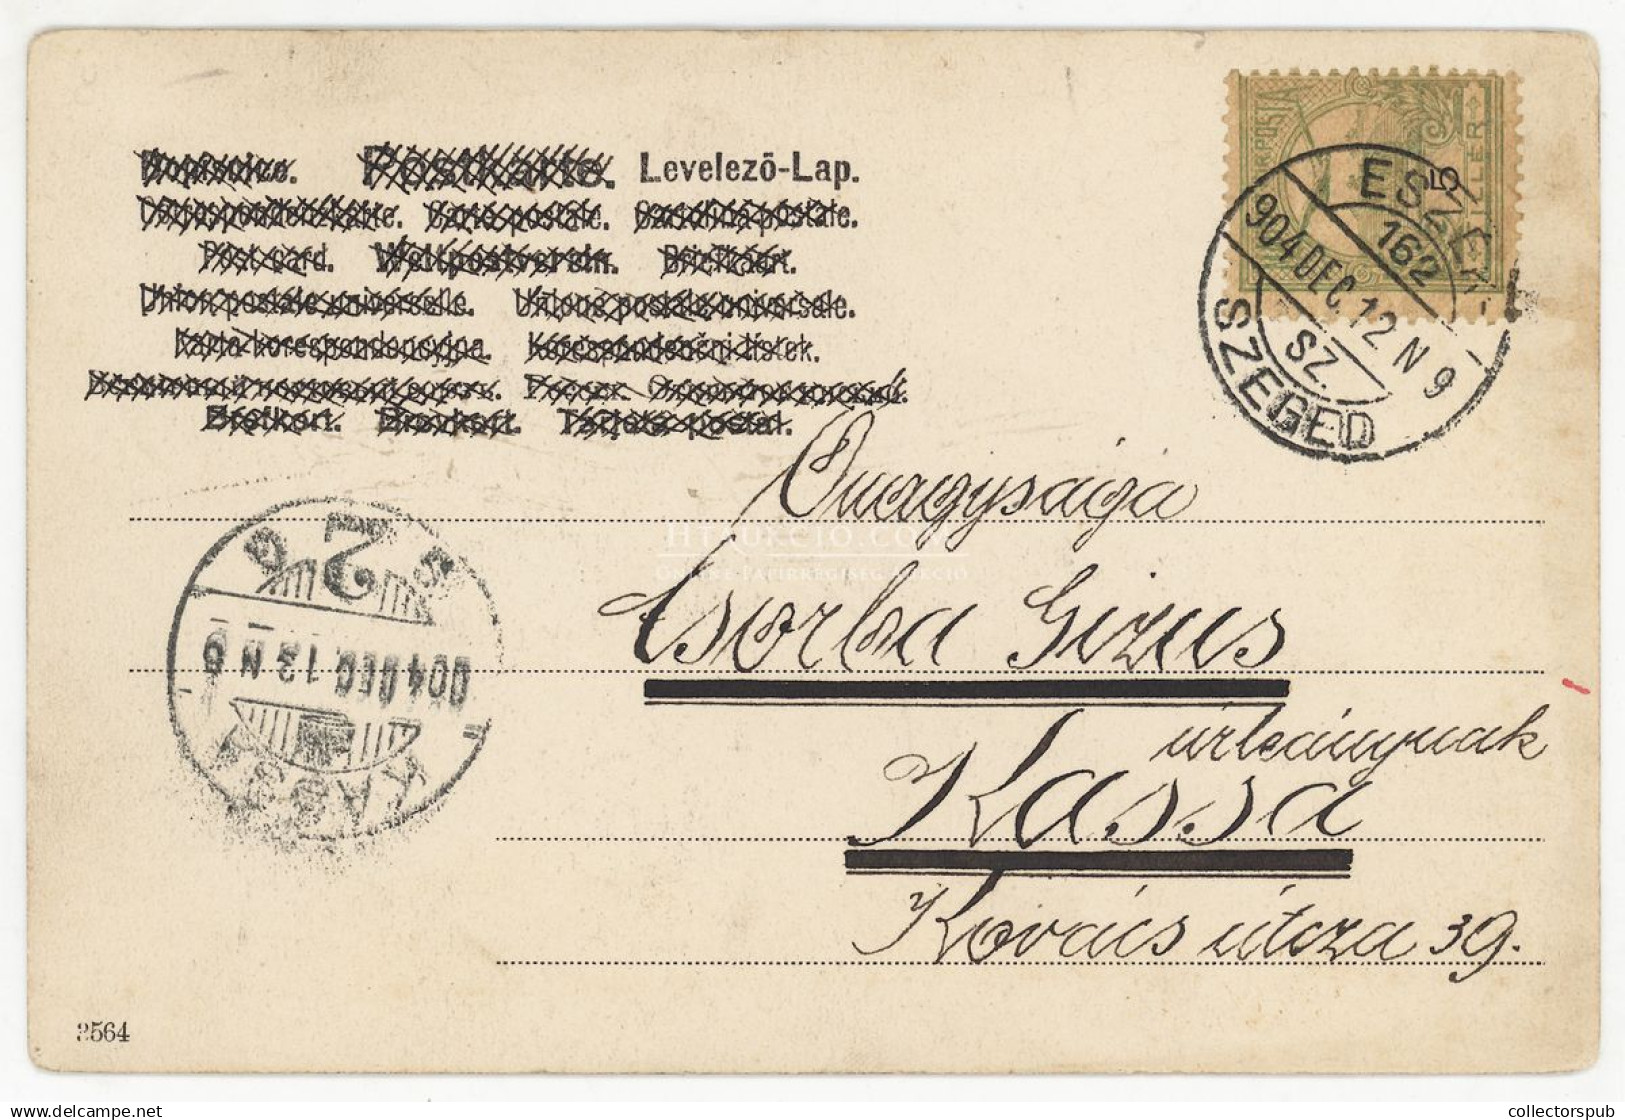 Dopisnice. Postkarte. Levelező-Lap.
Correspondenzkarte. Carte postale. Cartolina postale.
Post card. Weltpostverein. Briefkaart.
Union postale universelle. Unione postale universale.
Karta korespondencyjna. Korespondenční lístek.
Brefkort. Brevkort. Tarjeta postal.
MAGYAR KIR. POSTA
5
FILLÉR
162
904 DEC. 12 N 9
SZ.
SZEGED
Önagysága
HTAUKCIO.COM
ONLINE PAPÍRRÉGISÉG AUKCIÓ
Csorba Gizus
úrleánynak
Kassa
Kovács útcza 39.
2
904 DEC. 13 N 6
KASSA
3564
collectorspub